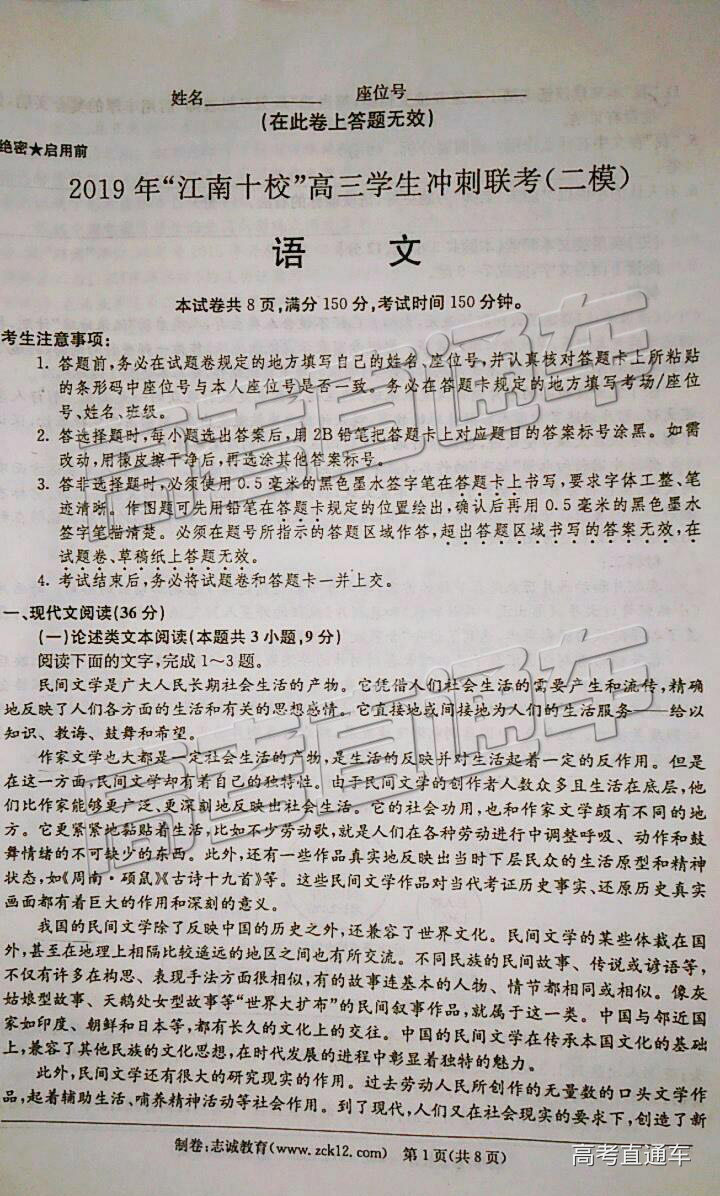 姓名____________ 座位号____________
(在此卷上答题无效)
绝密★启用前
2019 年“江南十校”高三学生冲刺联考(二模)
语 文
本试卷共 8 页,满分 150 分,考试时间 150 分钟。
考生注意事项:
1. 答题前,务必在试题卷规定的地方填写自己的姓名、座位号,并认真核对答题卡上所粘贴
的条形码中座位号与本人座位号是否一致。务必在答题卡规定的地方填写考场/座位
号、姓名、班级。
2. 答选择题时,每小题选出答案后,用 2B 铅笔把答题卡上对应题目的答案标号涂黑。如需
改动,用橡皮擦干净后,再选涂其他答案标号。
3. 答非选择题时,必须使用 0.5 毫米的黑色墨水签字笔在答题卡上书写,要求字体工整、笔
迹清晰。作图题可先用铅笔在答题卡规定的位置绘出,确认后再用 0.5 毫米的黑色墨水
签字笔描清楚。必须在题号所指示的答题区域作答,超出答题区域书写的答案无效,在
试题卷、草稿纸上答题无效。
4. 考试结束后,务必将试题卷和答题卡一并上交。
一、现代文阅读(36 分)
(一)论述类文本阅读(本题共 3 小题,9 分)
阅读下面的文字,完成 1～3 题。
民间文学是广大人民长期社会生活的产物。它凭借人们社会生活的需要产生和流传,精确
地反映了人们各方面的生活和有关的思想感情。它直接地或间接地为人们的生活服务——给以
知识、教诲、鼓舞和希望。
作家文学也大都是一定社会生活的产物,是生活的反映并对生活起着一定的反作用。但是
在这一方面,民间文学却有着自己的独特性。由于民间文学的创作者人数众多且生活在底层,他
们比作家能够更广泛、更深刻地反映出社会生活。它的社会功用,也和作家文学颇有不同的地
方。它更紧紧地黏贴着生活,比如不少劳动歌,就是人们在各种劳动进行中调整呼吸、动作和鼓
舞情绪的不可缺少的东西。此外,还有一些作品真实地反映出当时下层民众的生活原型和精神
状态,如《周南·硕鼠》《古诗十九首》等。这些民间文学作品对当代考证历史事实、还原历史真实
画面都有着巨大的作用和深刻的意义。
我国的民间文学除了反映中国的历史之外,还兼容了世界文化。民间文学的某些体裁在国
外,甚至在地理上相隔比较遥远的地区之间也有所交流。不同民族的民间故事、传说或谚语等,
不仅有许多在构思、表现手法方面很相似,有的故事连基本的人物、情节都相同或相似。像灰
姑娘型故事、天鹅处女型故事等“世界大扩布”的民间叙事作品,就属于这一类。中国与邻近国
家如印度、朝鲜和日本等,都有长久的文化上的交往。中国的民间文学在传承本国文化的基础
上,兼容了其他民族的文化思想,在时代发展的进程中彰显着独特的魅力。
此外,民间文学还有很大的研究现实的作用。过去劳动人民所创作的无量数的口头文学作
品,起着辅助生活、哺养精神活动等社会作用。到了现代,人们又在社会现实的要求下,创造了新
制卷:志诚教育(www.zck12.com) 第 1 页(共 8 页)
高考直通车
高考直通车
高考直通车